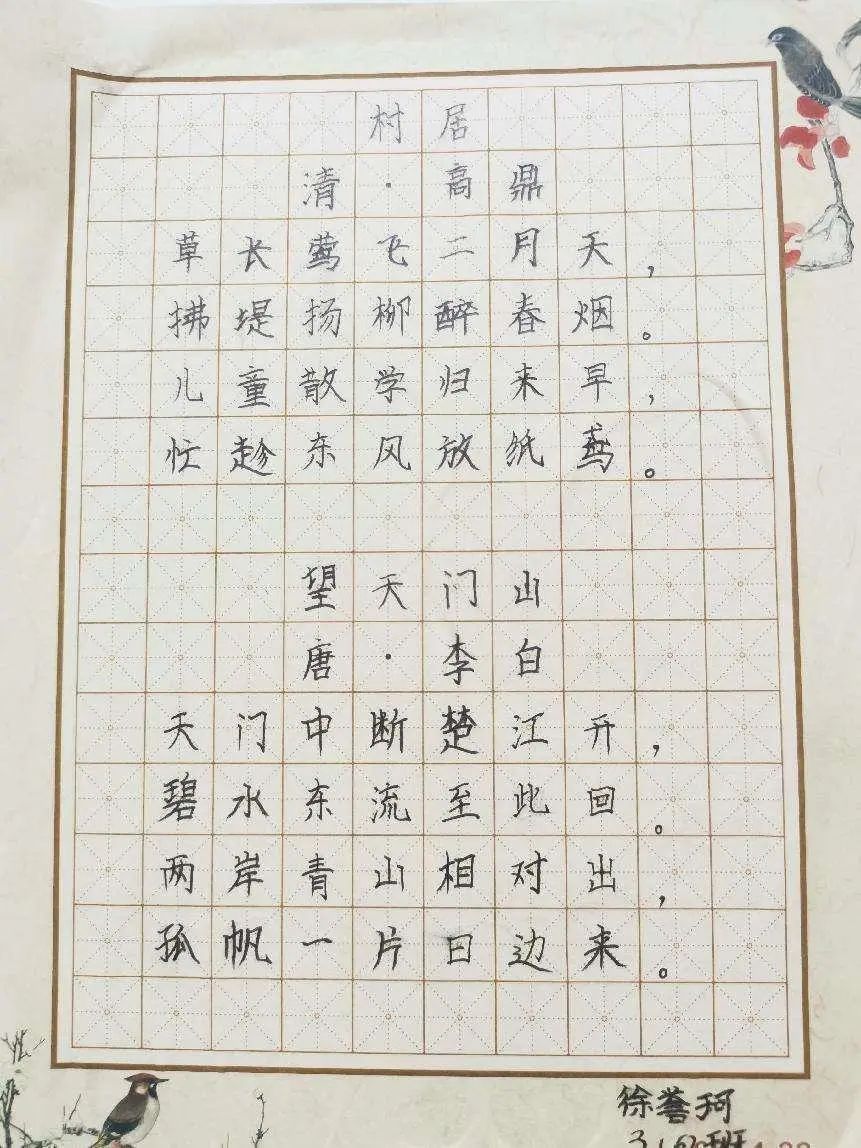 村居
清·高鼎
草长莺飞二月天，
拂堤扬柳醉春烟。
儿童散学归来早，
忙趁东风放纸鸢。
望天门山
唐·李白
天门中断楚江开，
碧水东流至此回。
两岸青山相对出，
孤帆一片日边来。
徐 珂